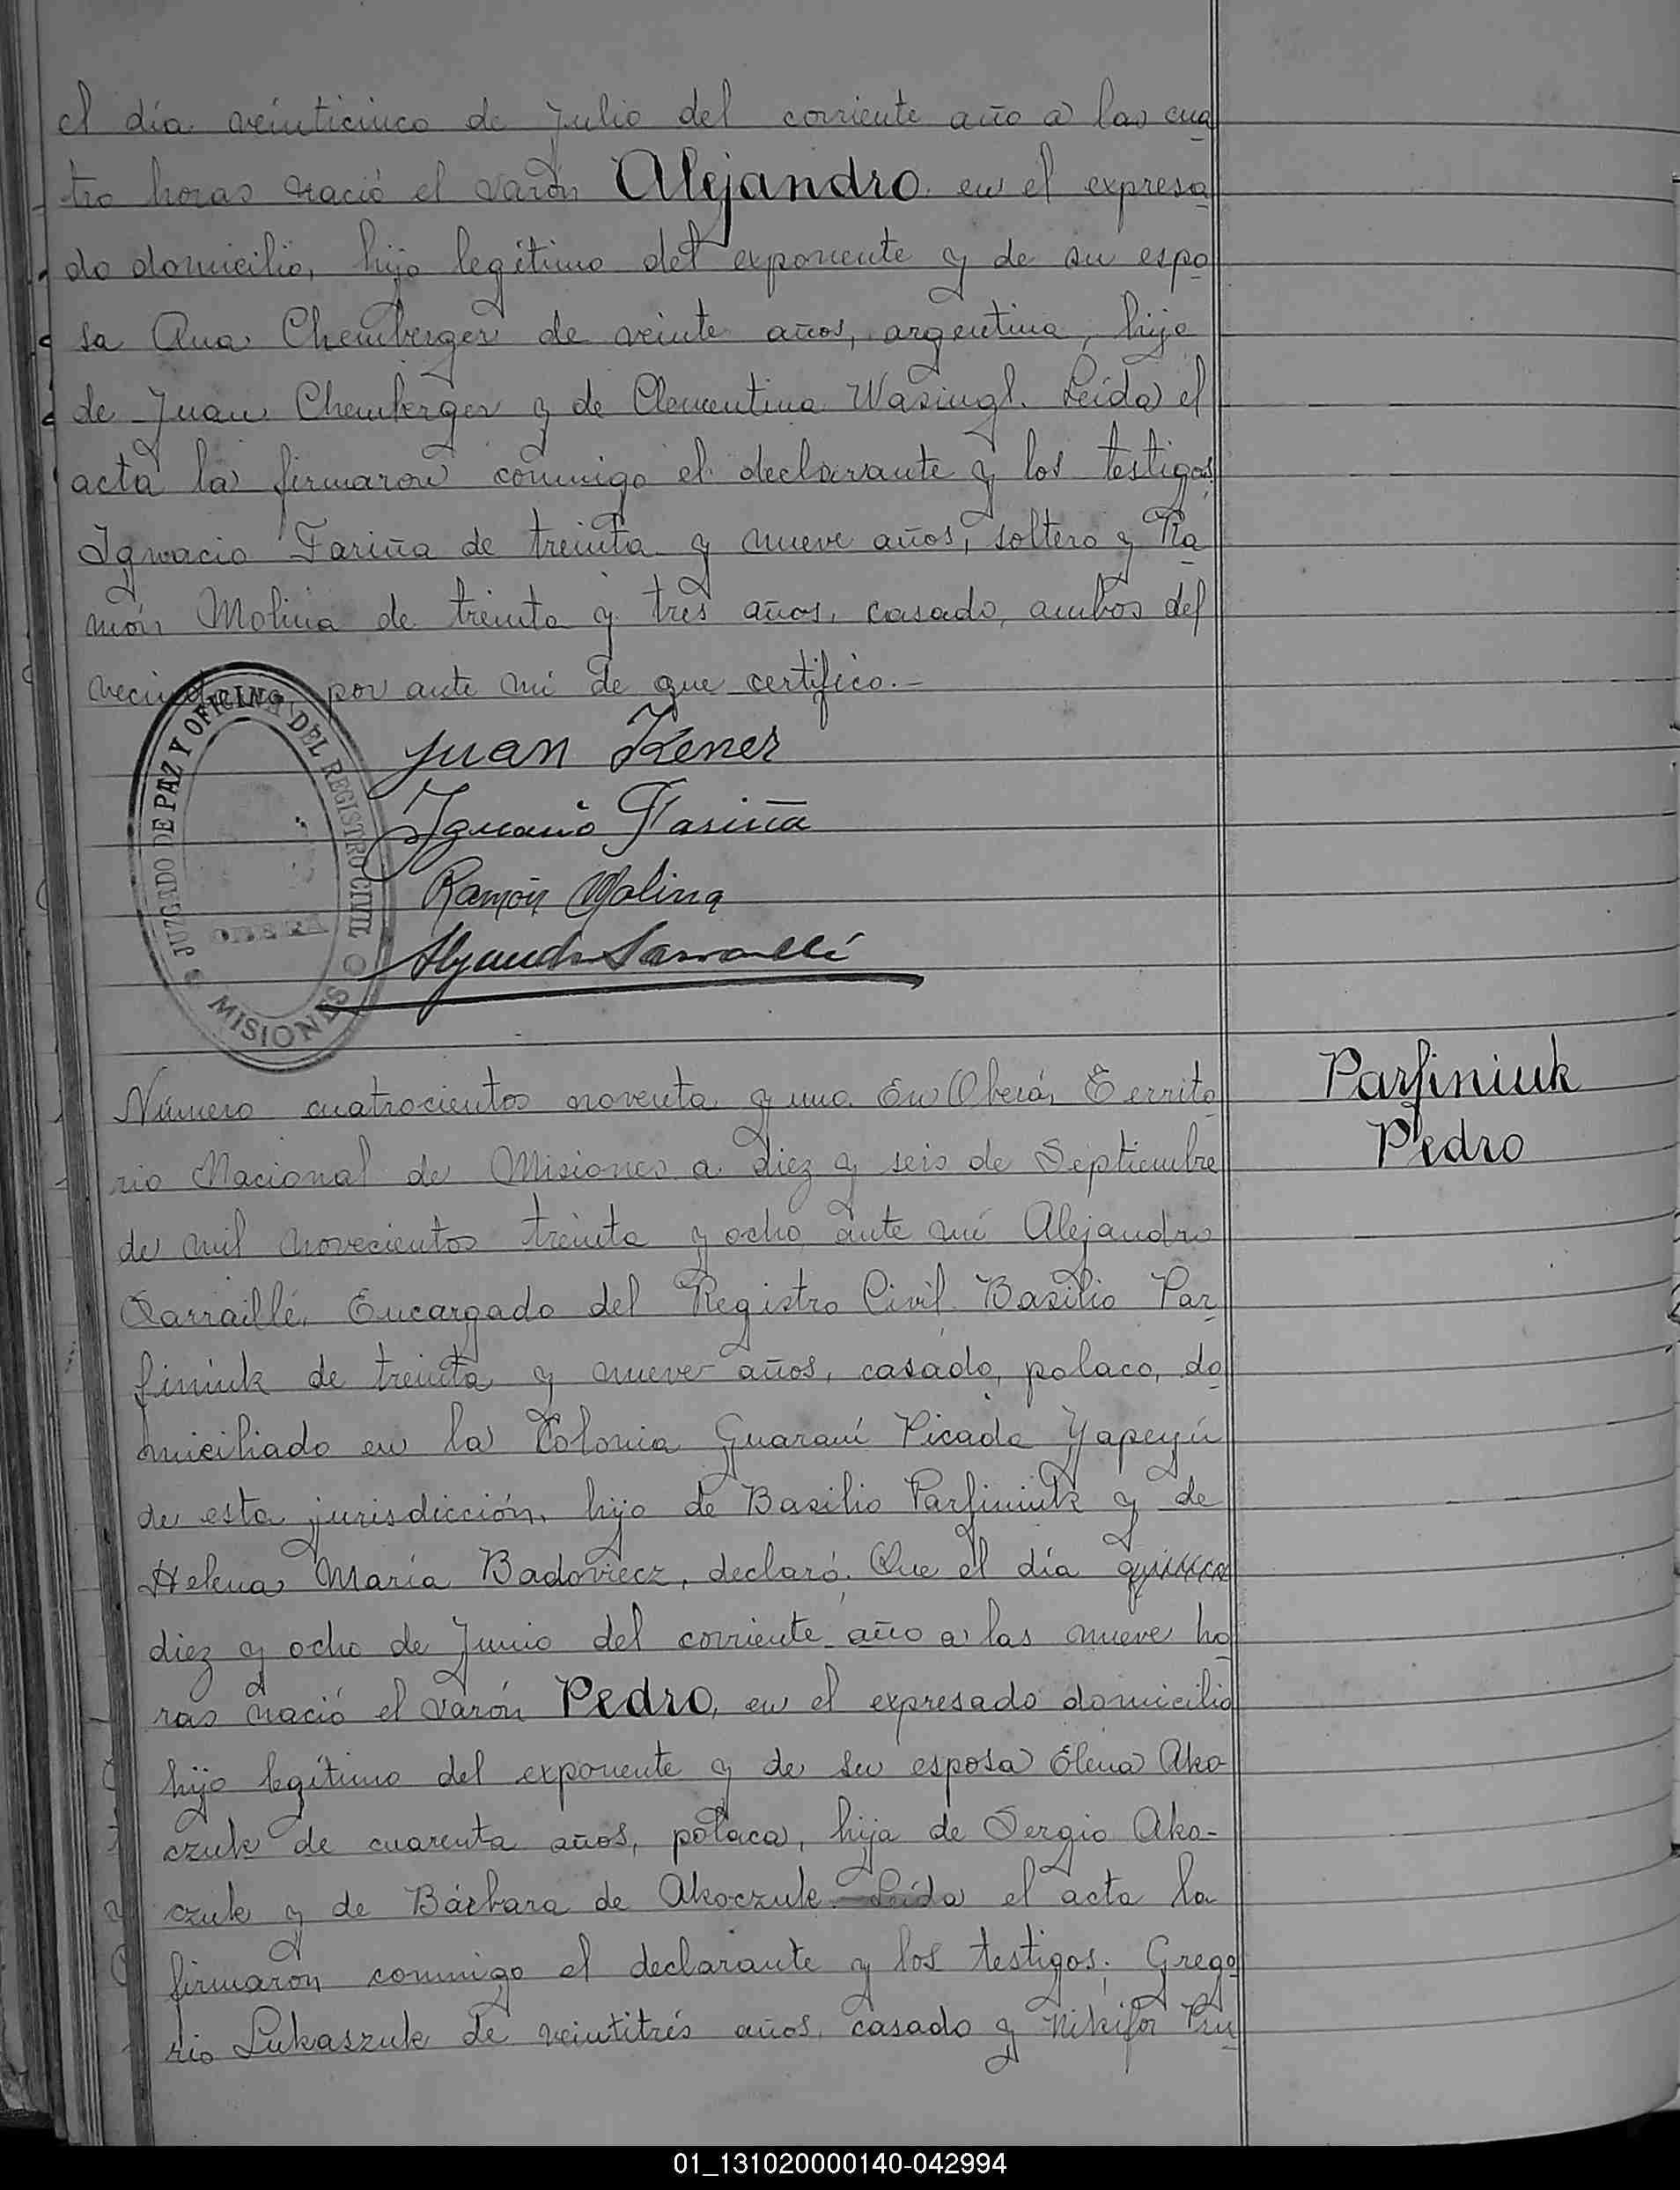 el día veinticinco de Julio del corriente año a las cua
tro horas nació el varón Alejandro. en el expresa
do domicilio, hijo legítimo del exponente y de su espo
sa Ana Chemberger de veinte años, argentina, hija
de Juan Chemberger y de Clementina Wasingl. Leída el
acta la firmaron conmigo el declarante y los testigos
Ignacio Fariña de treinta y nueve años, soltero y Ra
món Molina de treinta y tres años, casado, ambos del
vecindario, por ante mí de que certifico.-
JUZGADO DE PAZ Y OFICINA DEL REGISTRO CIVIL
OBERA
MISIONES
Juan Kener
Ignacio Fariña
Ramón Molina
Alejandro Sarraillé
Parfiniuk
Pedro
Número cuatrocientos noventa y uno. En Oberá, Territo
rio Nacional de Misiones a diez y seis de Septiembre
de mil novecientos treinta y ocho ante mí Alejandro
Sarraillé, Encargado del Registro Civil. Basilio Par
finiuk de treinta y nueve años, casado, polaco, do
miciliado en la Colonia Guaraní Picada Yapeyú
de esta jurisdicción, hijo de Basilio Parfiniuk y de
Helena María Badoviecz, declaró: Que el día quince
diez y ocho de Junio del corriente año a las nueve ho
ras nació el varón Pedro, en el expresado domicilio
hijo legítimo del exponente y de su esposa Elena Ako-
czuk de cuarenta años, polaca, hija de Sergio Ako-
czuk y de Bárbara de Akoczuk. Leída el acta la
firmaron conmigo el declarante y los testigos: Grego
rio Lukaszuk de veintitrés años, casado y Nikifor Pru
01_131020000140-042994